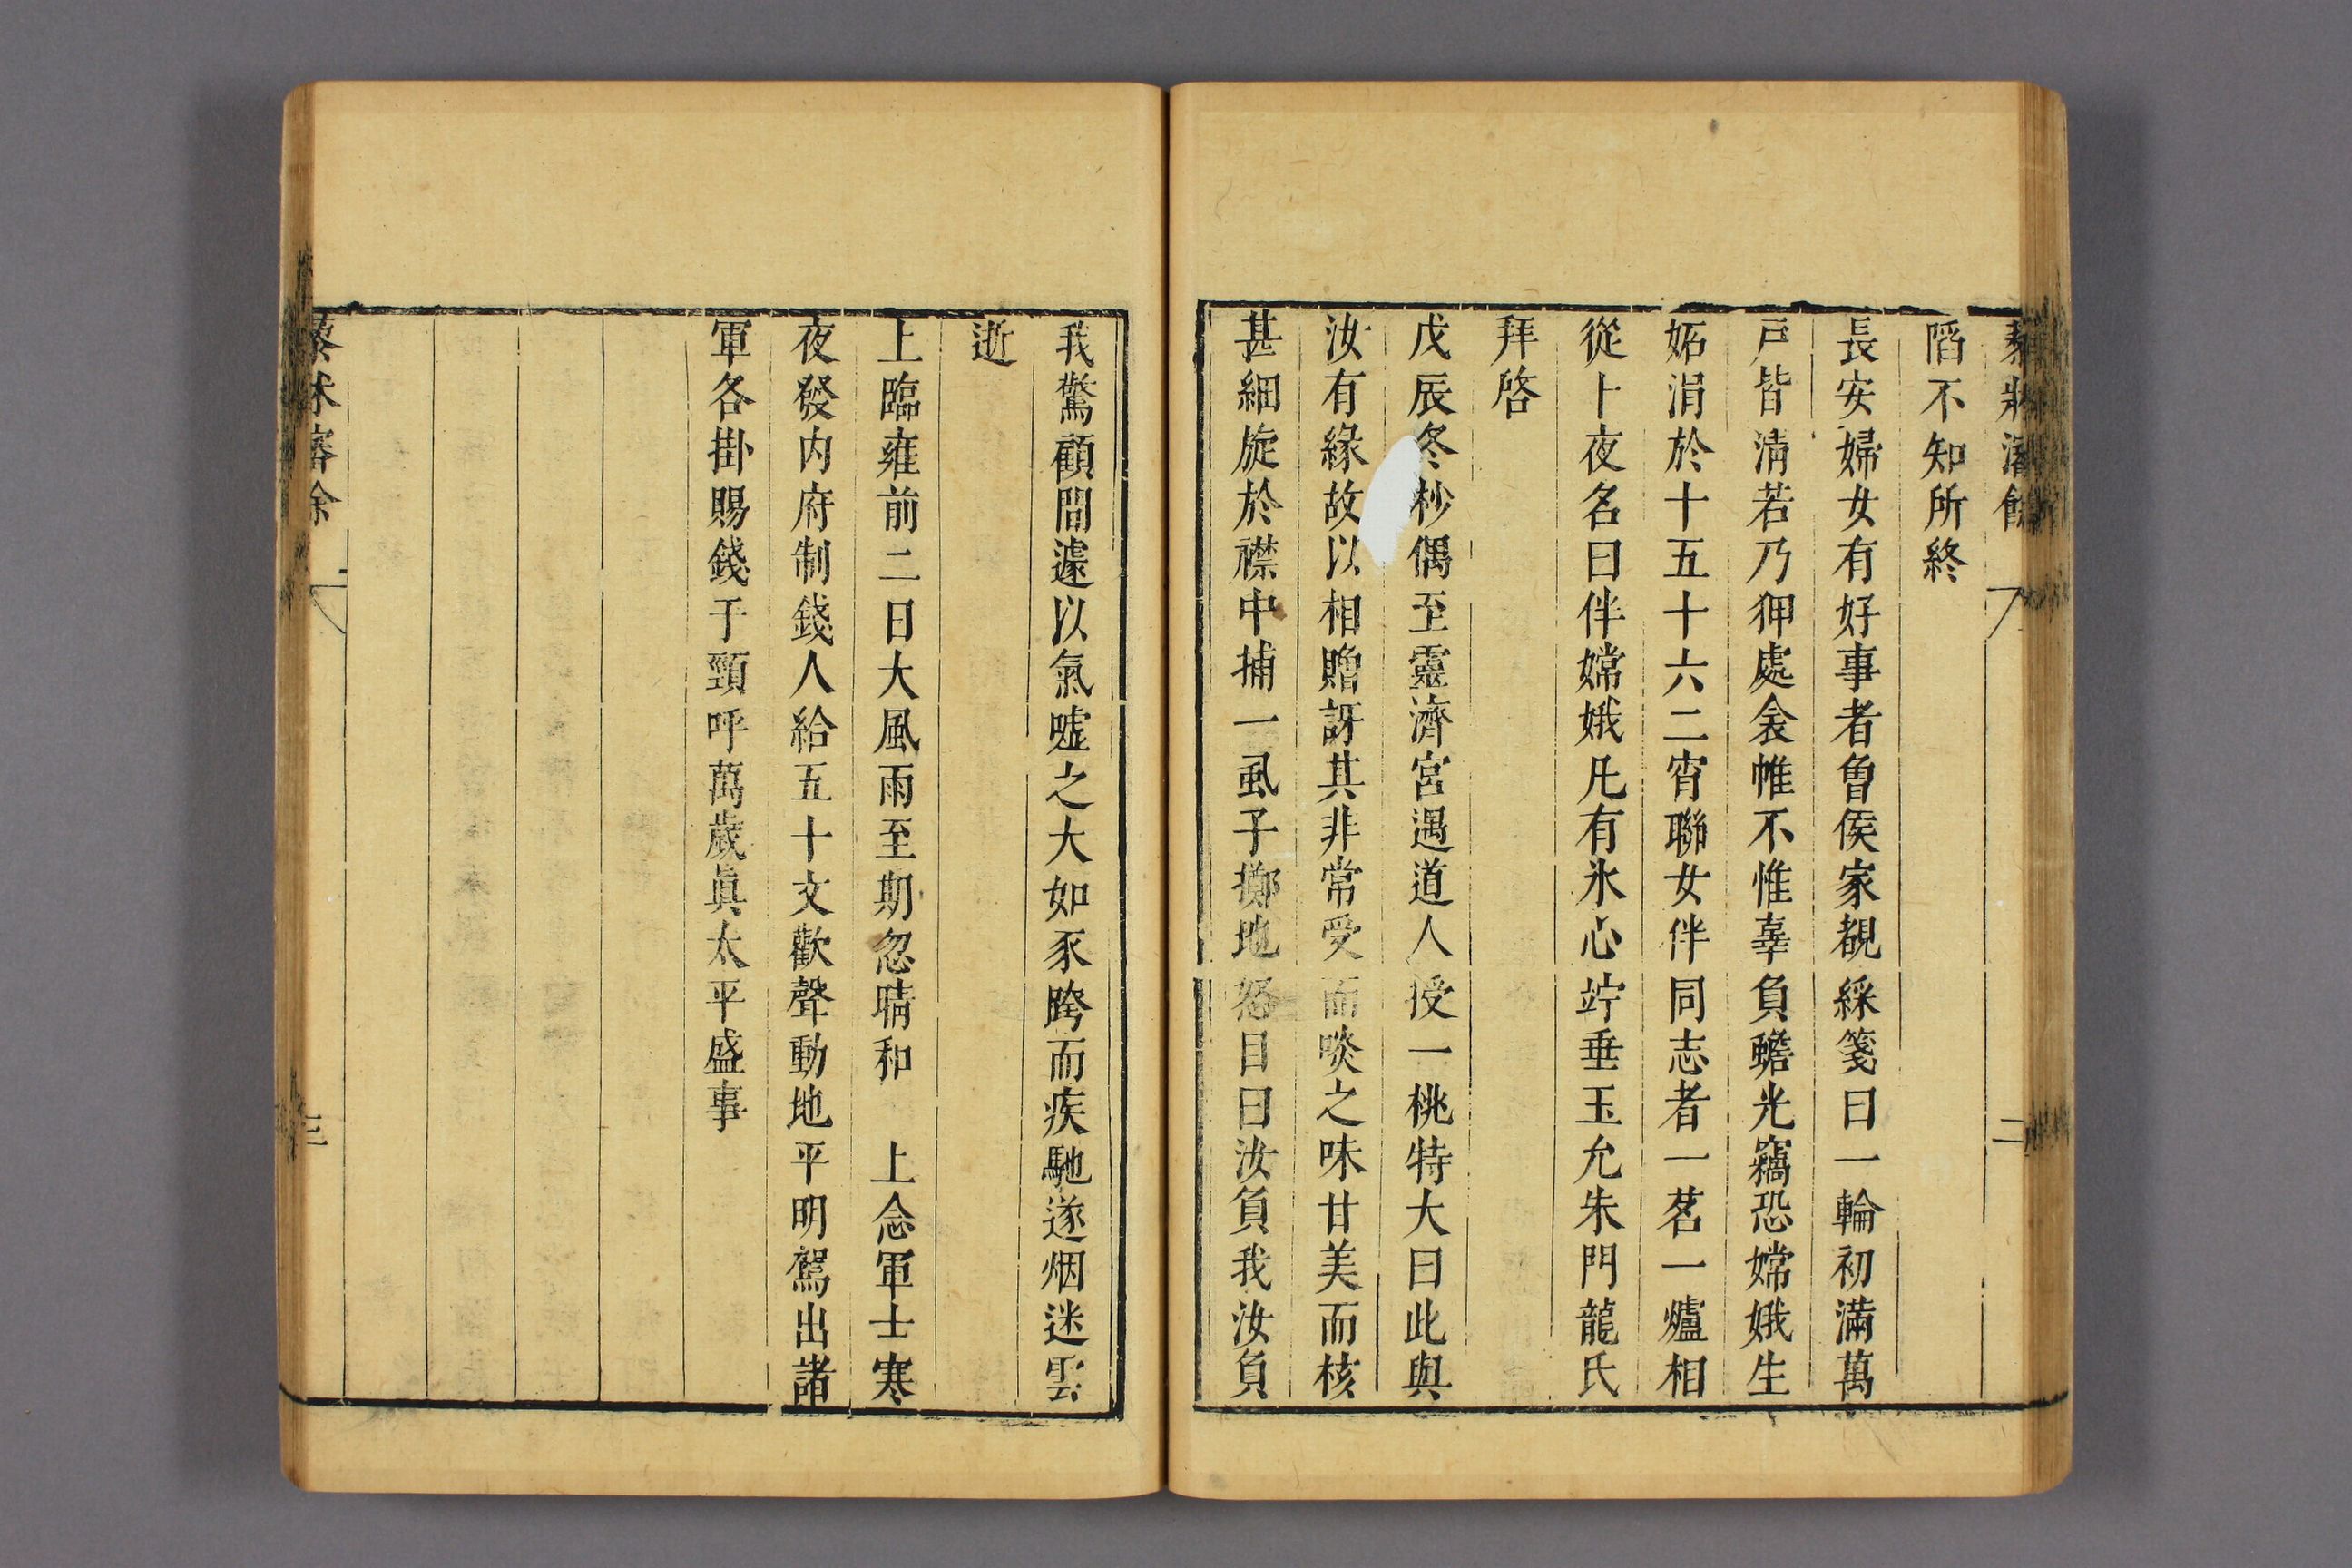 滔不知所終
長安婦女有好事者魯侯家覩綵箋曰一輪初滿萬
戸皆清若乃狎處衾帷不惟辜負蟾光竊恐嫦娥生
妬涓於十五十六二宵聯女伴同志者一茗一爐相
從卜夜名曰伴嫦娥凡有氷心竚垂玉允朱門龍氏
拜啓
戊辰冬杪偶至靈濟宮遇道人授一桃特大曰此與
汝有緣故以相贈訝其非常受而啖之味甘美而核
甚細旋於襟中捕一虱子擲地怒目曰汝負我汝負
我驚顧間遽以氣噓之大如豕跨而疾馳遂烟迷雲
逝
上臨雍前二日大風雨至期忽晴和 上念軍士寒
夜發内府制錢人給五十文歡聲動地平明駕出諸
軍各掛賜錢于頸呼萬歲眞太平盛事
三